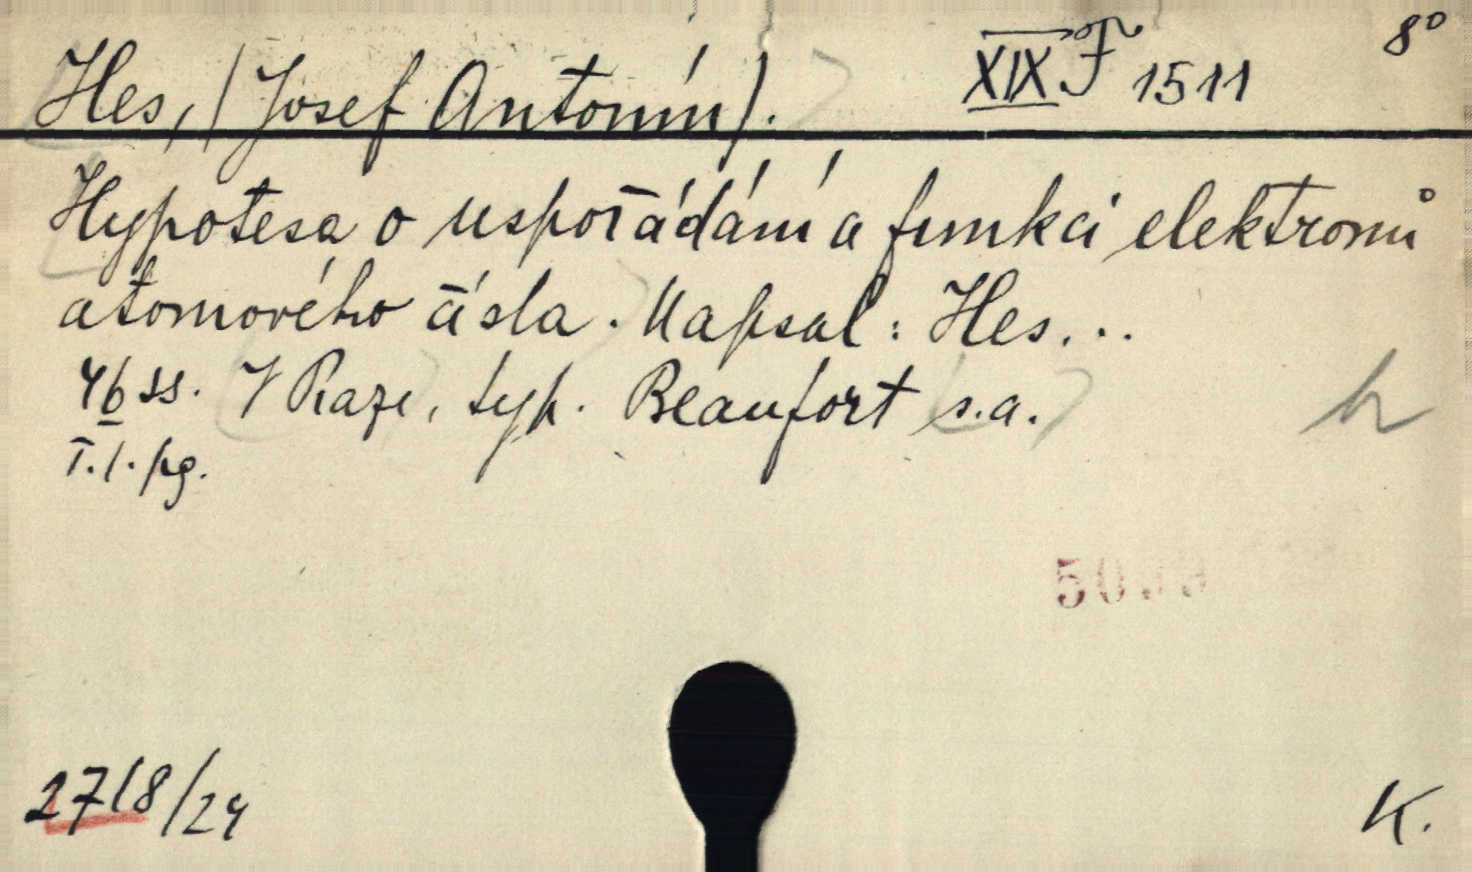 Hes, (Josef Antonín). XIX F 1511 8°
Hypotesa o uspořádání a funkci elektronů
atomového čísla. Napsal: Hes...
46 ss. V Praze, typ. Beaufort s.a.
T. l. pg.
2718/24 K.